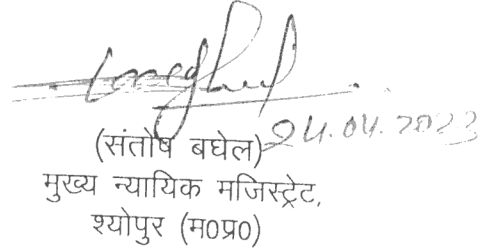 24.04.2023
(संतोष बघेल)
मुख्य न्यायिक मजिस्ट्रेट,
श्योपुर (म०प्र०)